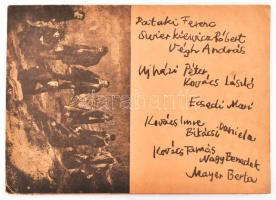 Pataki Ferenc
Swierkiewicz Róbert
Végh András
Ujházi Péter
Kovács László
Ecsedi Mari
Kovács Imre
Bikácsi Daniela
Kovács Tamás
Nagy Benedek
Mayer Berta